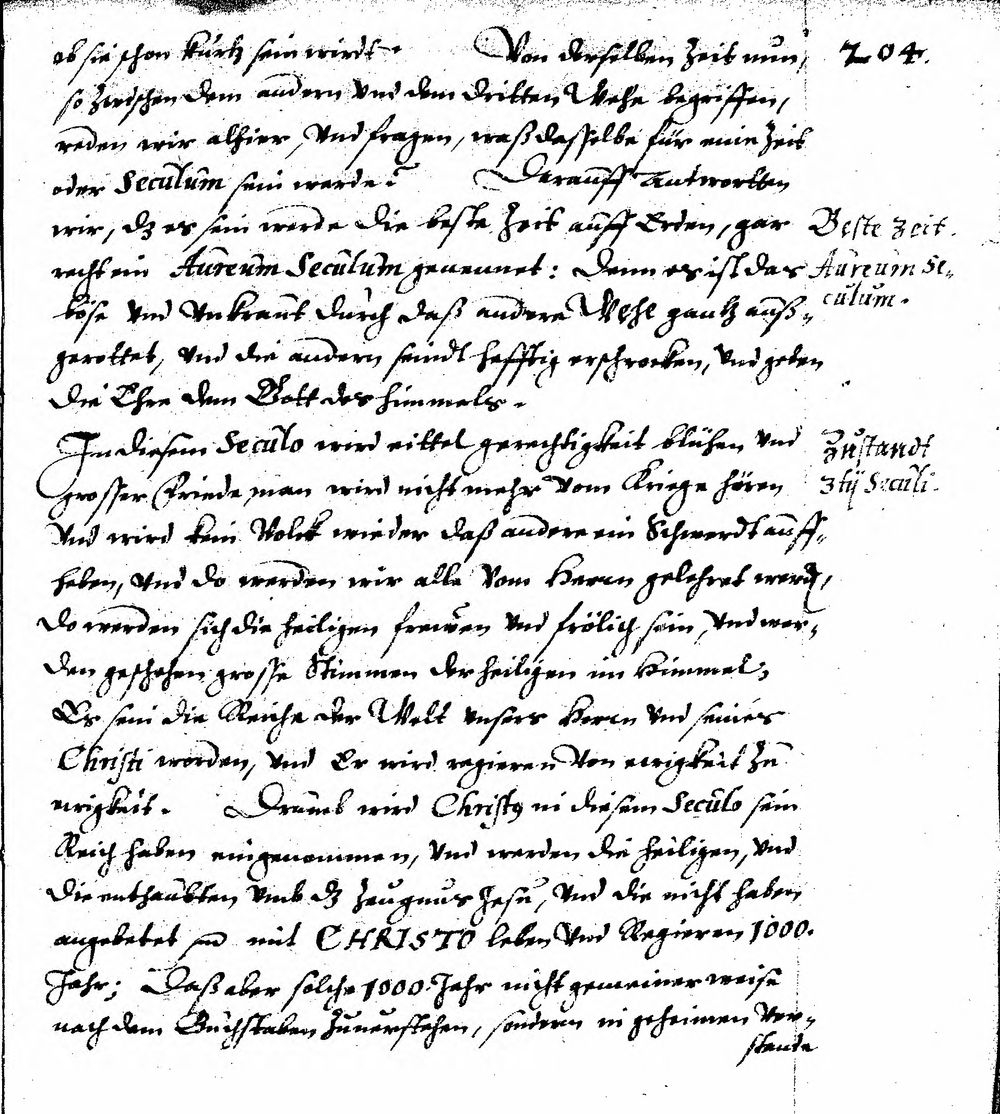 ob sie schon kurtz sein wirdt. Von derselben Zeit nun, 204.
so zwischen dem andern vnd dem dritten Wehe begriffen,
reden wir alhier, vnd fragen, waß dasselbe für eine Zeit
oder Seculum sein werde? Darauff Antwortten
wir, dz es sein werde die beste Zeit auff Erden, gar
Beste Zeit.
recht ein Aureum Seculum genennet: Denn es ist das
Aureum Se-
culum.
böse vnd Vnkraut durch daß andere Wehe gantz auß-
gerottet, vnd die andern seindt hefftig erschrocken, vnd geben
die Ehre dem Gott des himmels.
In diesem Seculo wird eittel gerechtigkeit blühen vnd
Zustandt
grosser Friede, man wird nicht mehr vom Kriege hören
3tij Seculi.
vnd wird kein Volck wieder daß andere ein Schwerdt auff-
heben, vnd do werden wir alle vom Herrn gelehret werdn,
do werden sich die heiligen frewen vnd frölich sein, vnd wer-
den geschehen grosse Stimmen der heiligen im Himmel,
Es sein die Reiche der Welt vnsers Herrn vnd seines
Christi worden, vnd Er wird regieren von ewigkeit zu
ewigkeit. Drumb wird Christq in diesem Seculo sein
Reich haben eingenommen, vnd werden die heiligen, vnd
die enthaubten vmb dz Zeugnus Jesu, vnd die nicht haben
angebetet mit CHRISTO leben vnd Regieren 1000.
Jahr; Daß aber solche 1000. Jahr nicht gemeiner weise
nach dem Buchstaben zuuerstehen, sondern in geheimen Ver-
stande